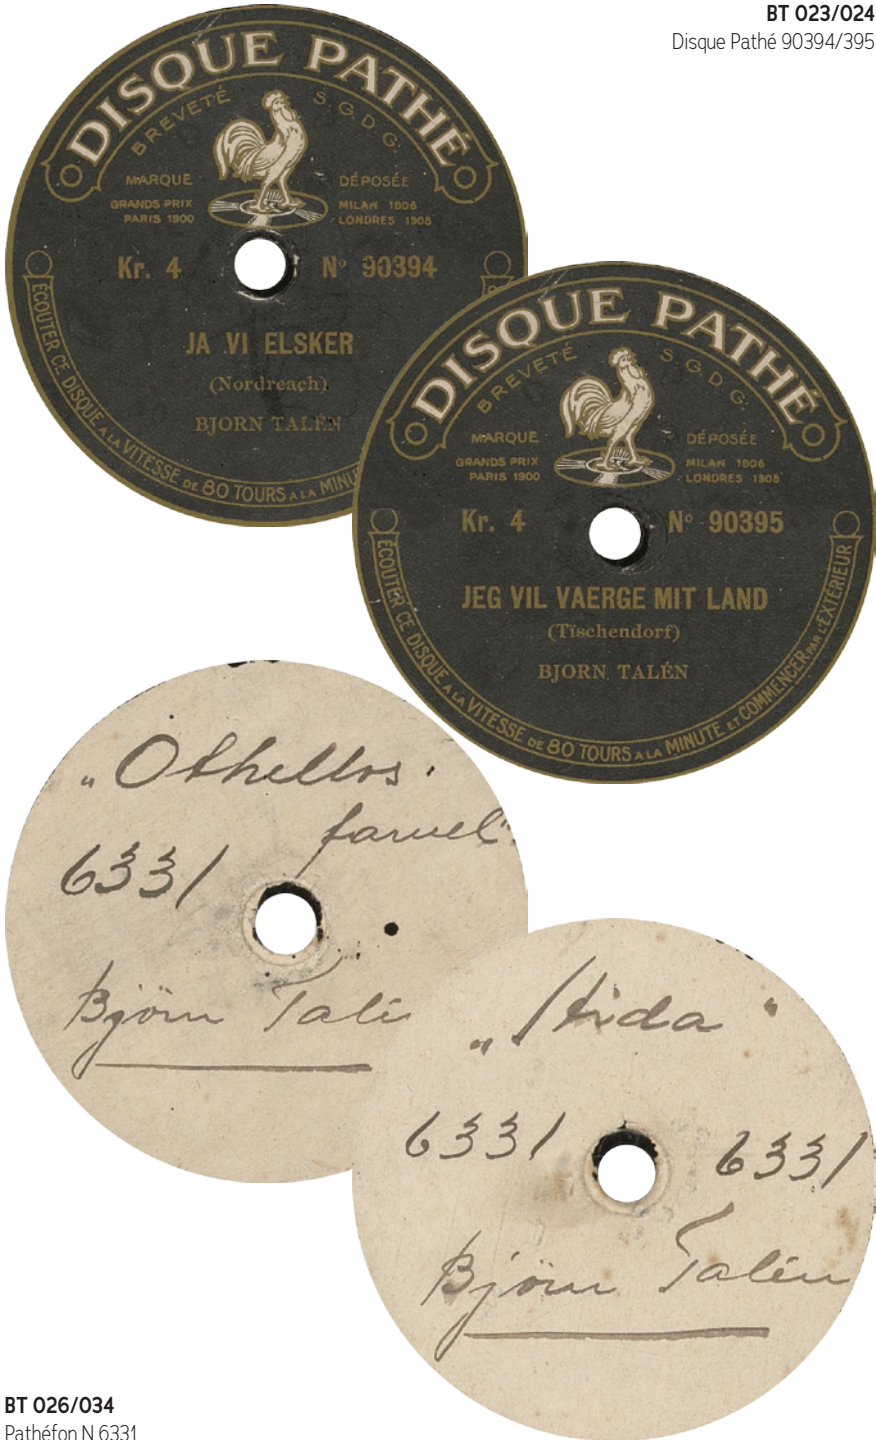 BT 023/024
Disque Pathé 90394/395
DISQUE PATHÉ
BREVETÉ S.G.D.G.
MARQUE DÉPOSÉE
GRANDS PRIX MILAN 1906
PARIS 1900 LONDRES 1908
Kr. 4 No 90394
JA VI ELSKER
(Nordreach)
BJORN TALÉN
ÉCOUTER CE DISQUE A LA VITESSE DE 80 TOURS A LA MINU
DISQUE PATHÉ
BREVETÉ S.G.D.G.
MARQUE DÉPOSÉE
GRANDS PRIX MILAN 1906
PARIS 1900 LONDRES 1908
Kr. 4 No 90395
JEG VIL VAERGE MIT LAND
(Tischendorf)
BJORN TALÉN
ÉCOUTER CE DISQUE A LA VITESSE DE 80 TOURS A LA MINUTE ET COMMENCER PAR L'EXTÉRIEUR
„Othellos
farvel"
6331
Björn Talé
„Aida"
6331 6331
Björn Talén
BT 026/034
Pathéfon N 6331